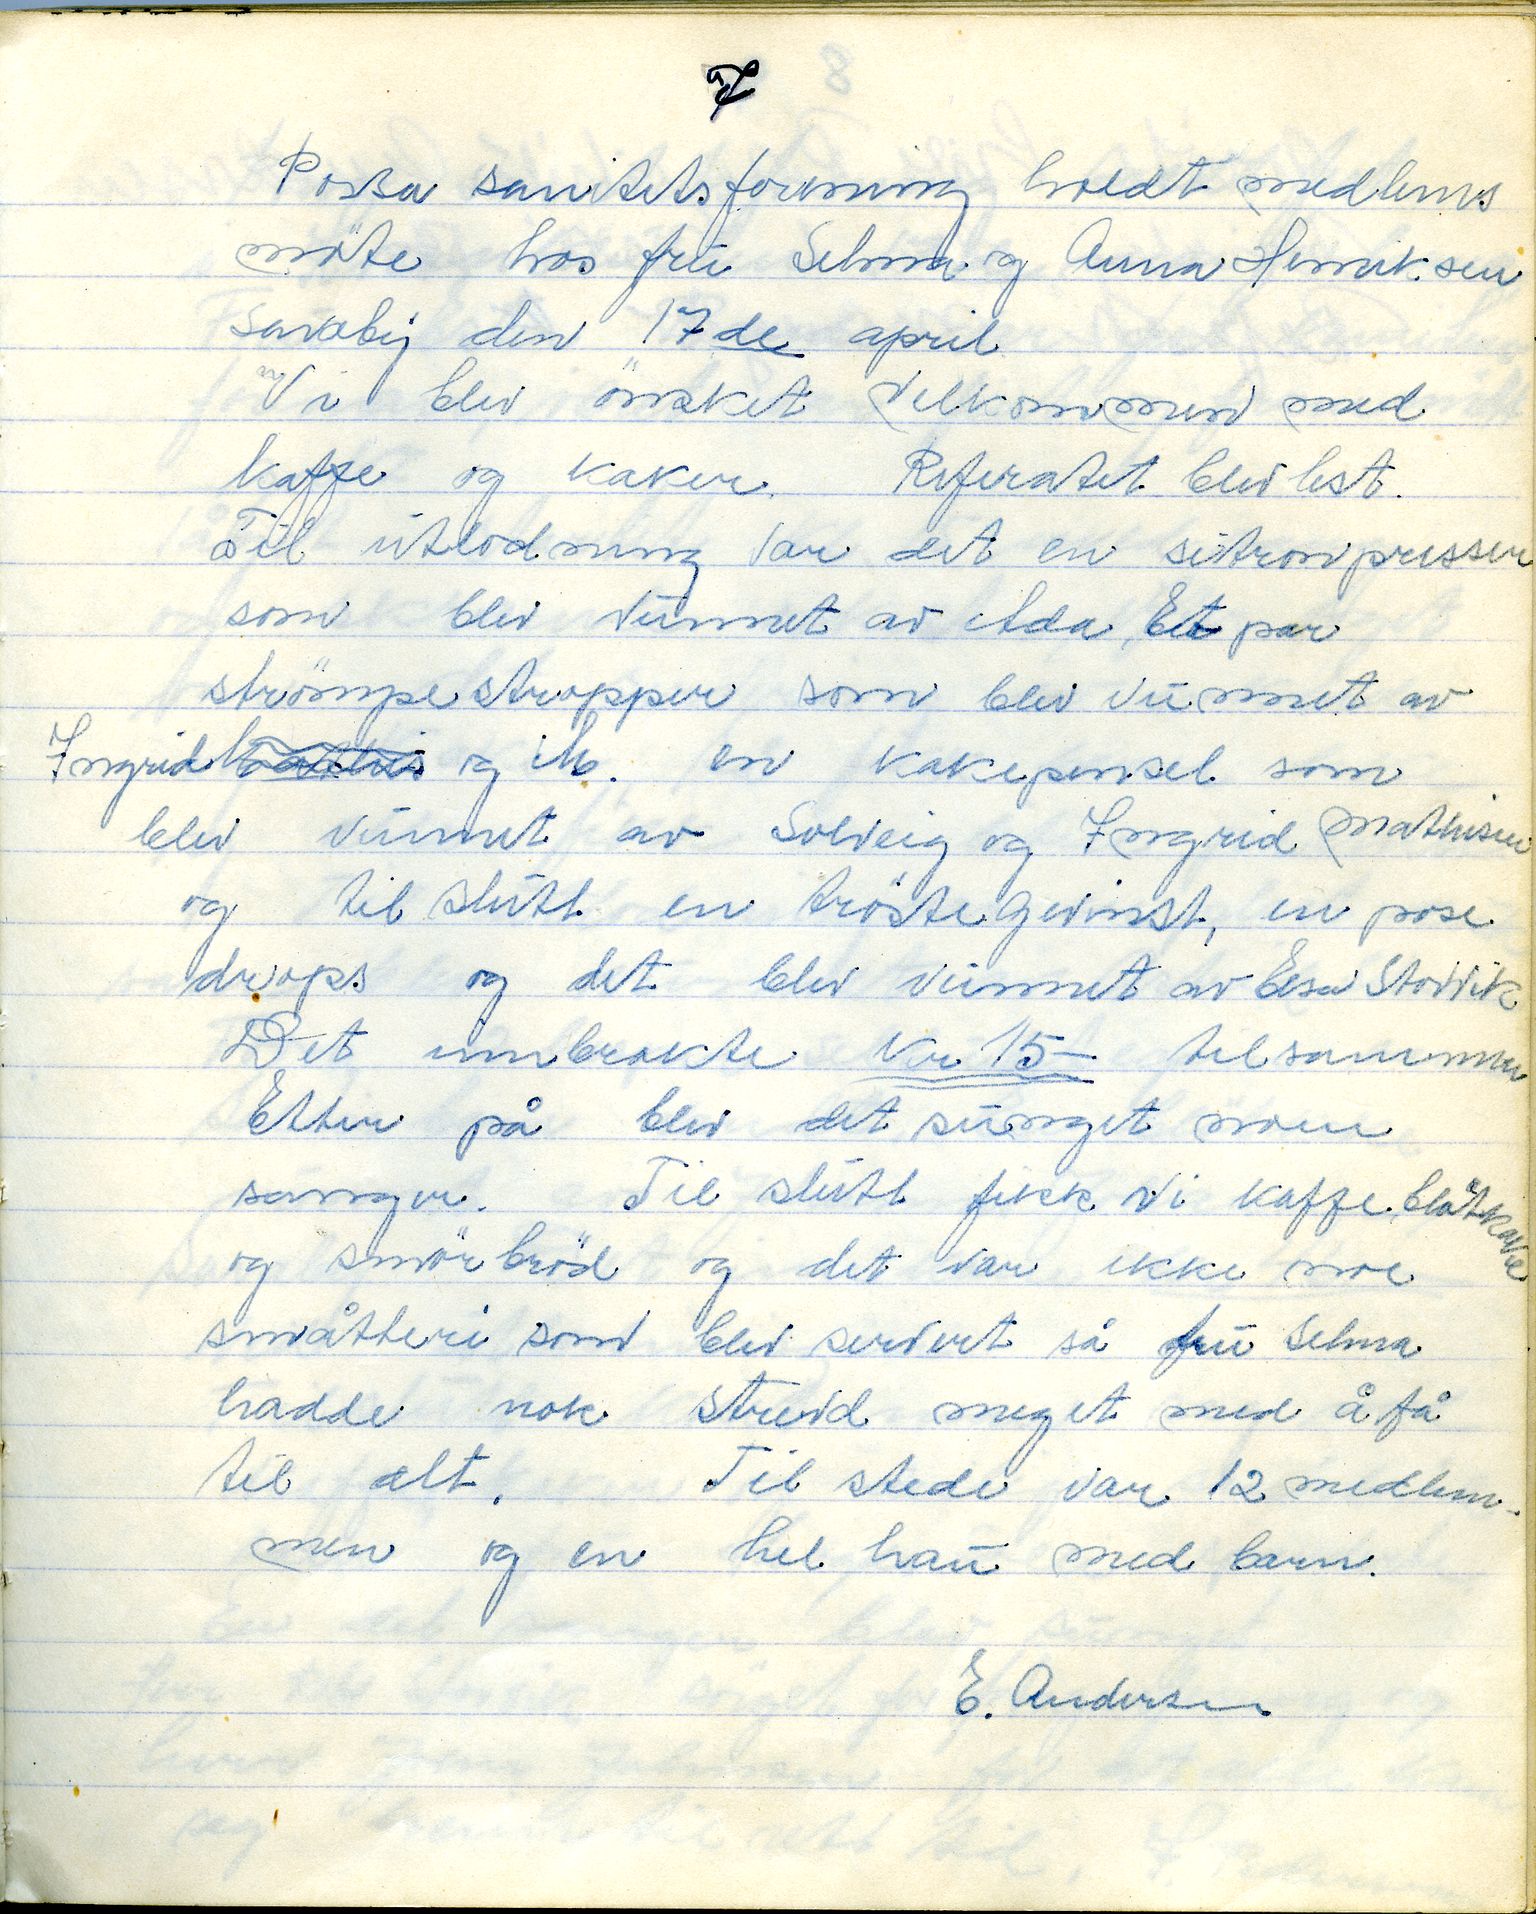 7
Possa sanitetsforening holdt medlems
möte hos fru Selma og Anna Henriksen
Sandbij den 17de april
Vi blev önsket velkommen med
kaffe og kaker. Referatet blev lest.
Til utlodning var det en sitronpresser
som blev vunnet av Ada, Et par
strömpestropper som blev vunnet av
Ingrid og M. en kakepensel som
blev vunnet av Solveig og Ingrid Mathisen
og til slutt en tröstegevinst, en pose
drops og det blev vunnet av Elsa Storvik
Det innbrakte Kr 15– tilsammen
Etter på blev det sunget noen
sanger. Til slutt fikk vi kaffe, blötkake
og smörbröd og det var ikke noe
småtteri som blev servert så fru Selma
hadde nok streвd meget med å få
til alt. Til stede var 12 medlem-
men og en hel hau med barn.
E. Andersen